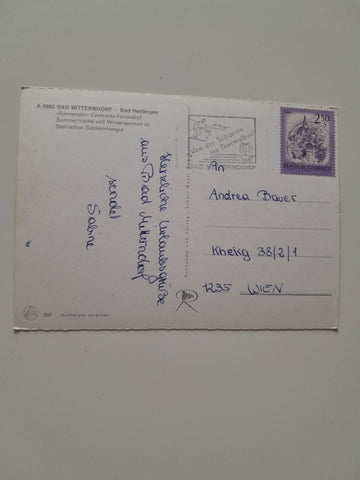 A-8983 BAD MITTERNDORF - Bad Heilbrunn
»Sonnenalm« Contracta-Feriendorf
Sommerfrische und Wintersportort im
Steirischen Salzkammergut
Herzliche Urlaubsgrüße
aus Bad Mitterndorf
sendet
Sabine
Von der Schipiste
ins Thermalbad
BAD MITTERNDORF
2.50
S
REPUBLIK ÖSTERREICH
An
Andrea Bauer
Khekg. 38/2/1
1235 WIEN
Nachdruck verboten